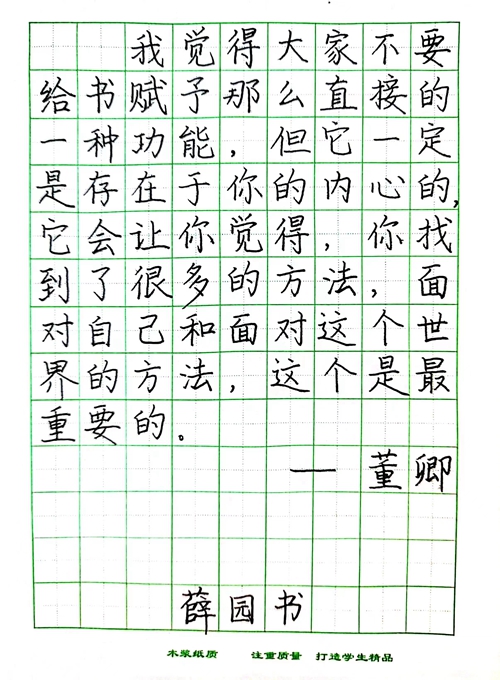 我觉得大家不要
给书赋予那么直接的
一种功能，但它一定
是存在于你的内心的，
它会让你觉得，你找
到了很多的方法，面
对自己和面对这个世
界的方法，这个是最
重要的。
——董卿
薛园书
木浆纸质 注重质量 打造学生精品